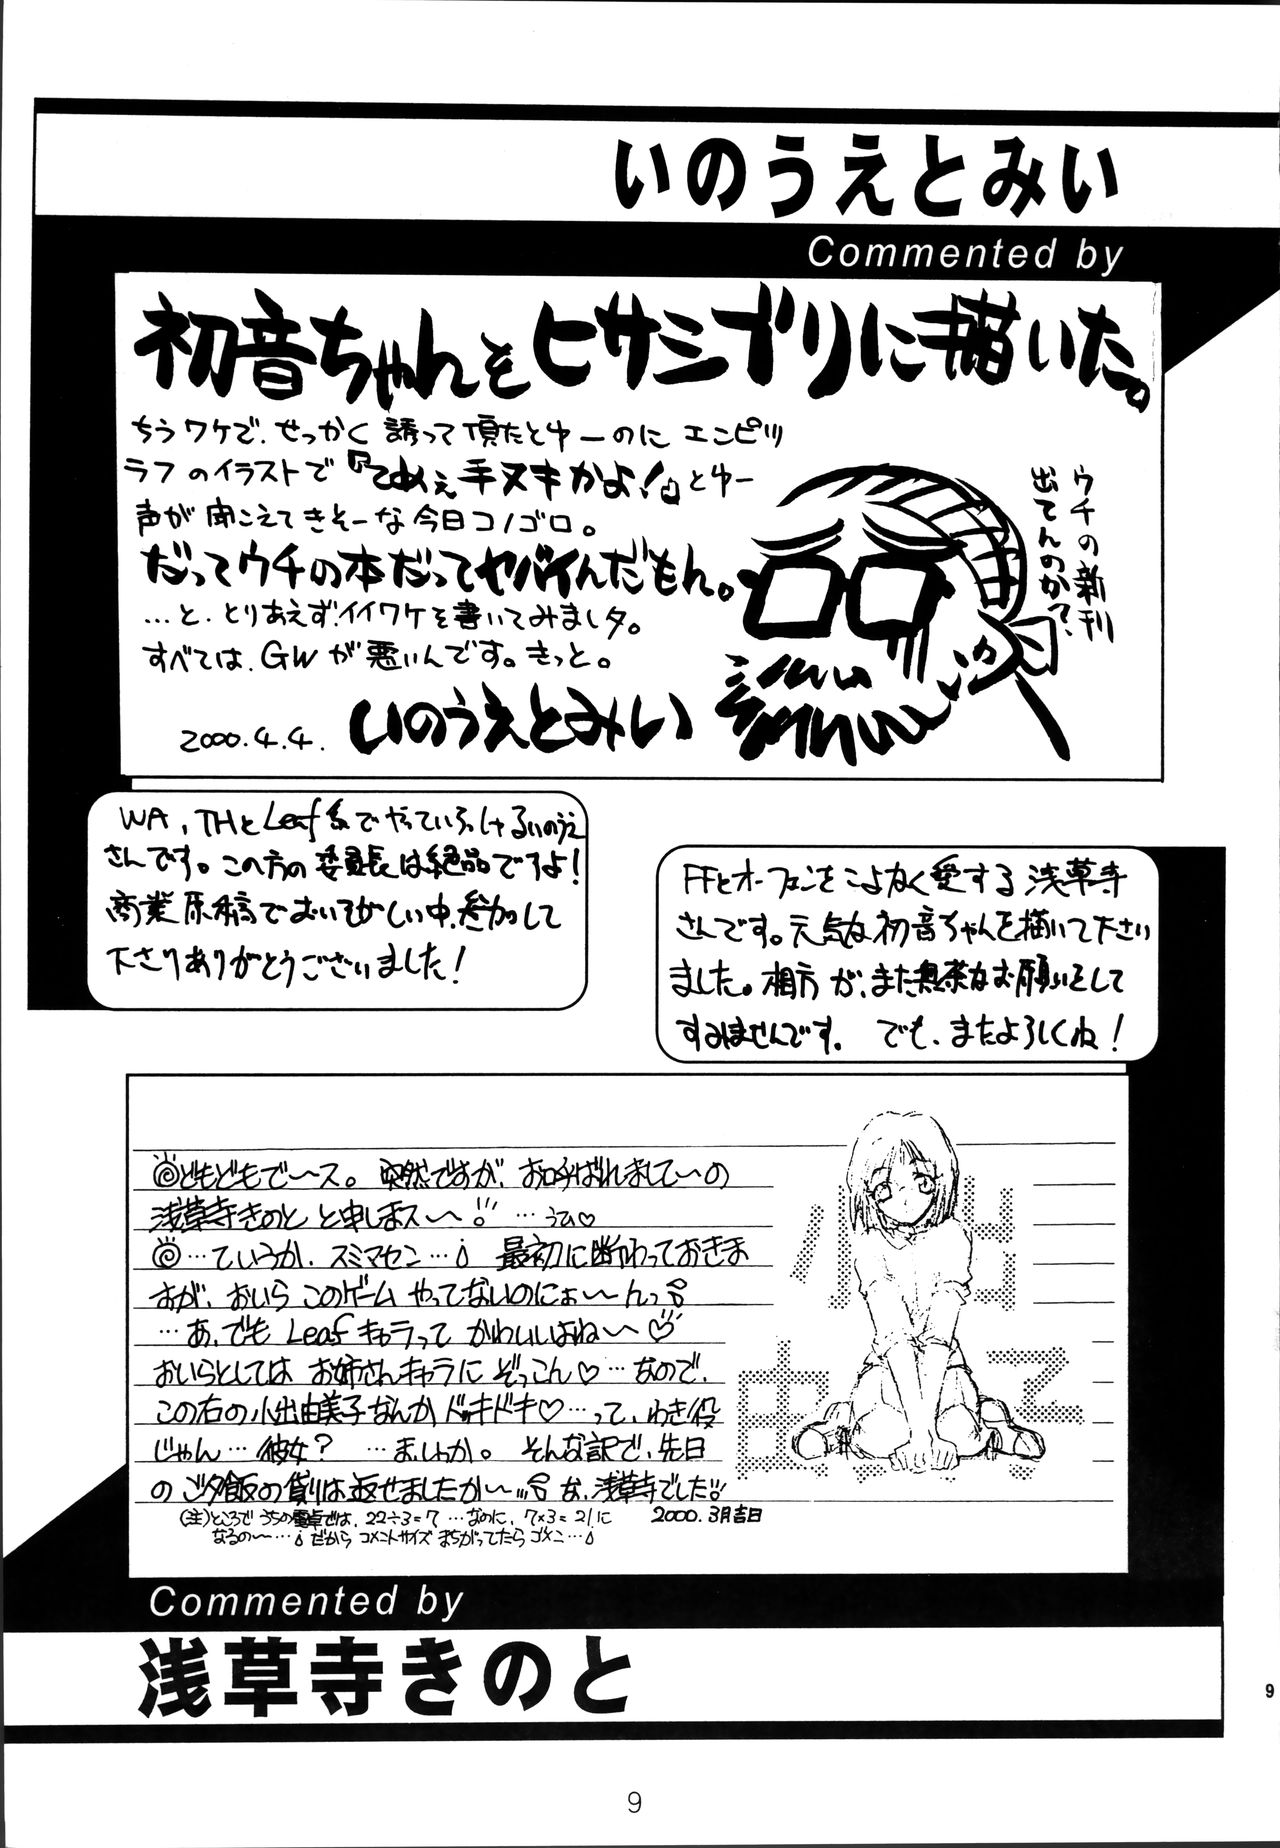 いのうえとみい
Commented by
初音ちゃんをヒサシブリに描いた。
ちうワケで、せっかく誘って頂たとゆーのに エンピツ
ラフのイラストで『てめぇ手ヌキかよ!』とゆー
声が聞こえてきそーな今日コノゴロ。
だってウチの本だってヤバイんだもん。
…と、とりあえずイイワケを書いてみましタ。
すべては、GWが悪いんです。きっと。
2000.4.4. いのうえとみい
ウチの新刊
出てんのか?
WA、THとLeaf系でやっていらっしゃるいのうえ
さんです。この方の委員長は絶品ですよ!
商業原稿でおいそがしい中、参加して
下さりありがとうございました!
FFとオーフェンをこよなく愛する浅草寺
さんです。元気な初音ちゃんを描いて下さい
ました。相方が、また無茶なお願いをして
すみませんです。 でも、またよろしくね!
どもどもで〜ス。突然ですが、お呼ばれしまして〜の
浅草寺きのと と申しまス〜 …うひ♡
…ていうか、スミマセン… 最初に断わっておきま
すが、おいら このゲーム やってないのにぉ〜んっ
…あ、でも Leafキャラって かわいいよね〜♡
おいらとしては お姉さんキャラに ぞっこん♡…なので、
この右の小出由美子なんか ドッキドキ♡…って、わき役
じゃん…彼女? …ま、しゃか。 そんな訳で、先日
の ご夕飯の貸りは返せましたか〜… な、浅草寺でした!!
(注)ところで うちの電卓では、22÷3=7 …なのに、7×3=21に
なるの〜… だから コメントサイズ まちがってたら ゴメン…
2000.3月吉日
小出
由美子
Commented by
浅草寺きのと
9
9